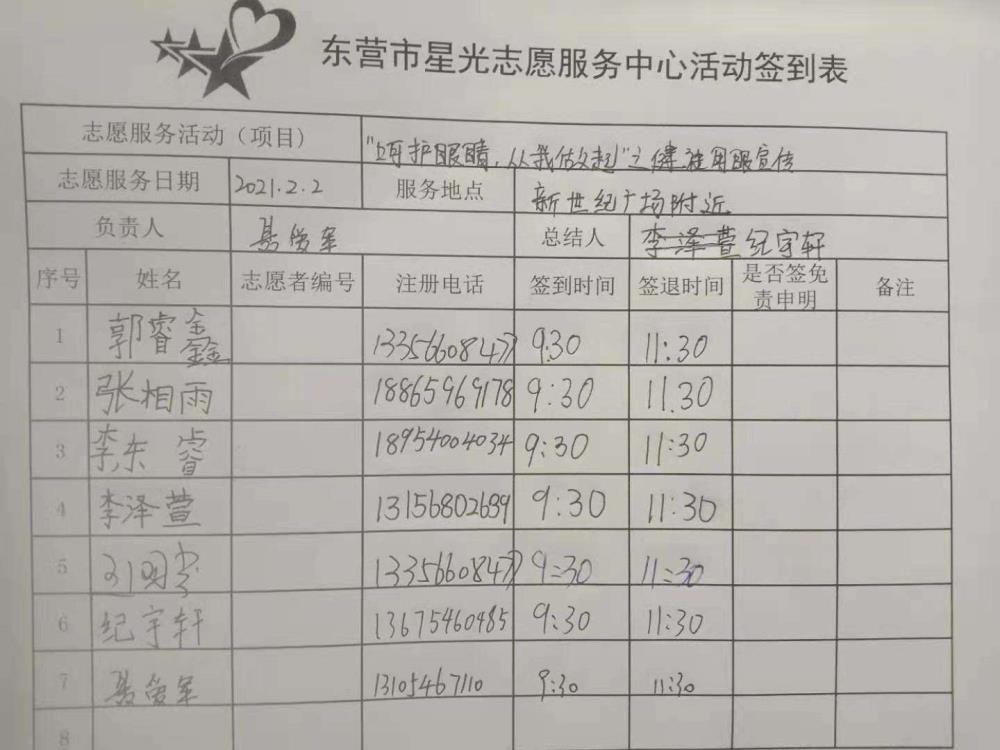 东营市星光志愿服务中心活动签到表
志愿服务活动（项目） "呵护眼睛，从我做起"之健康用眼宣传
志愿服务日期 2021.2.2 服务地点 新世纪广场附近
负责人 总结人 李泽萱 纪宇轩
序号 姓名 志愿者编号 注册电话 签到时间 签退时间 是否签免责申明 备注
1 郭睿鑫 13356608477 9:30 11:30
2 张相雨 18865969178 9:30 11.30
3 李东睿 18954004034 9:30 11:30
4 李泽萱 13156802699 9:30 11:30
5 13356608477 9:30 11:30
6 纪宇轩 13675460485 9:30 11:30
7 13105467110 9:30 11:30
8